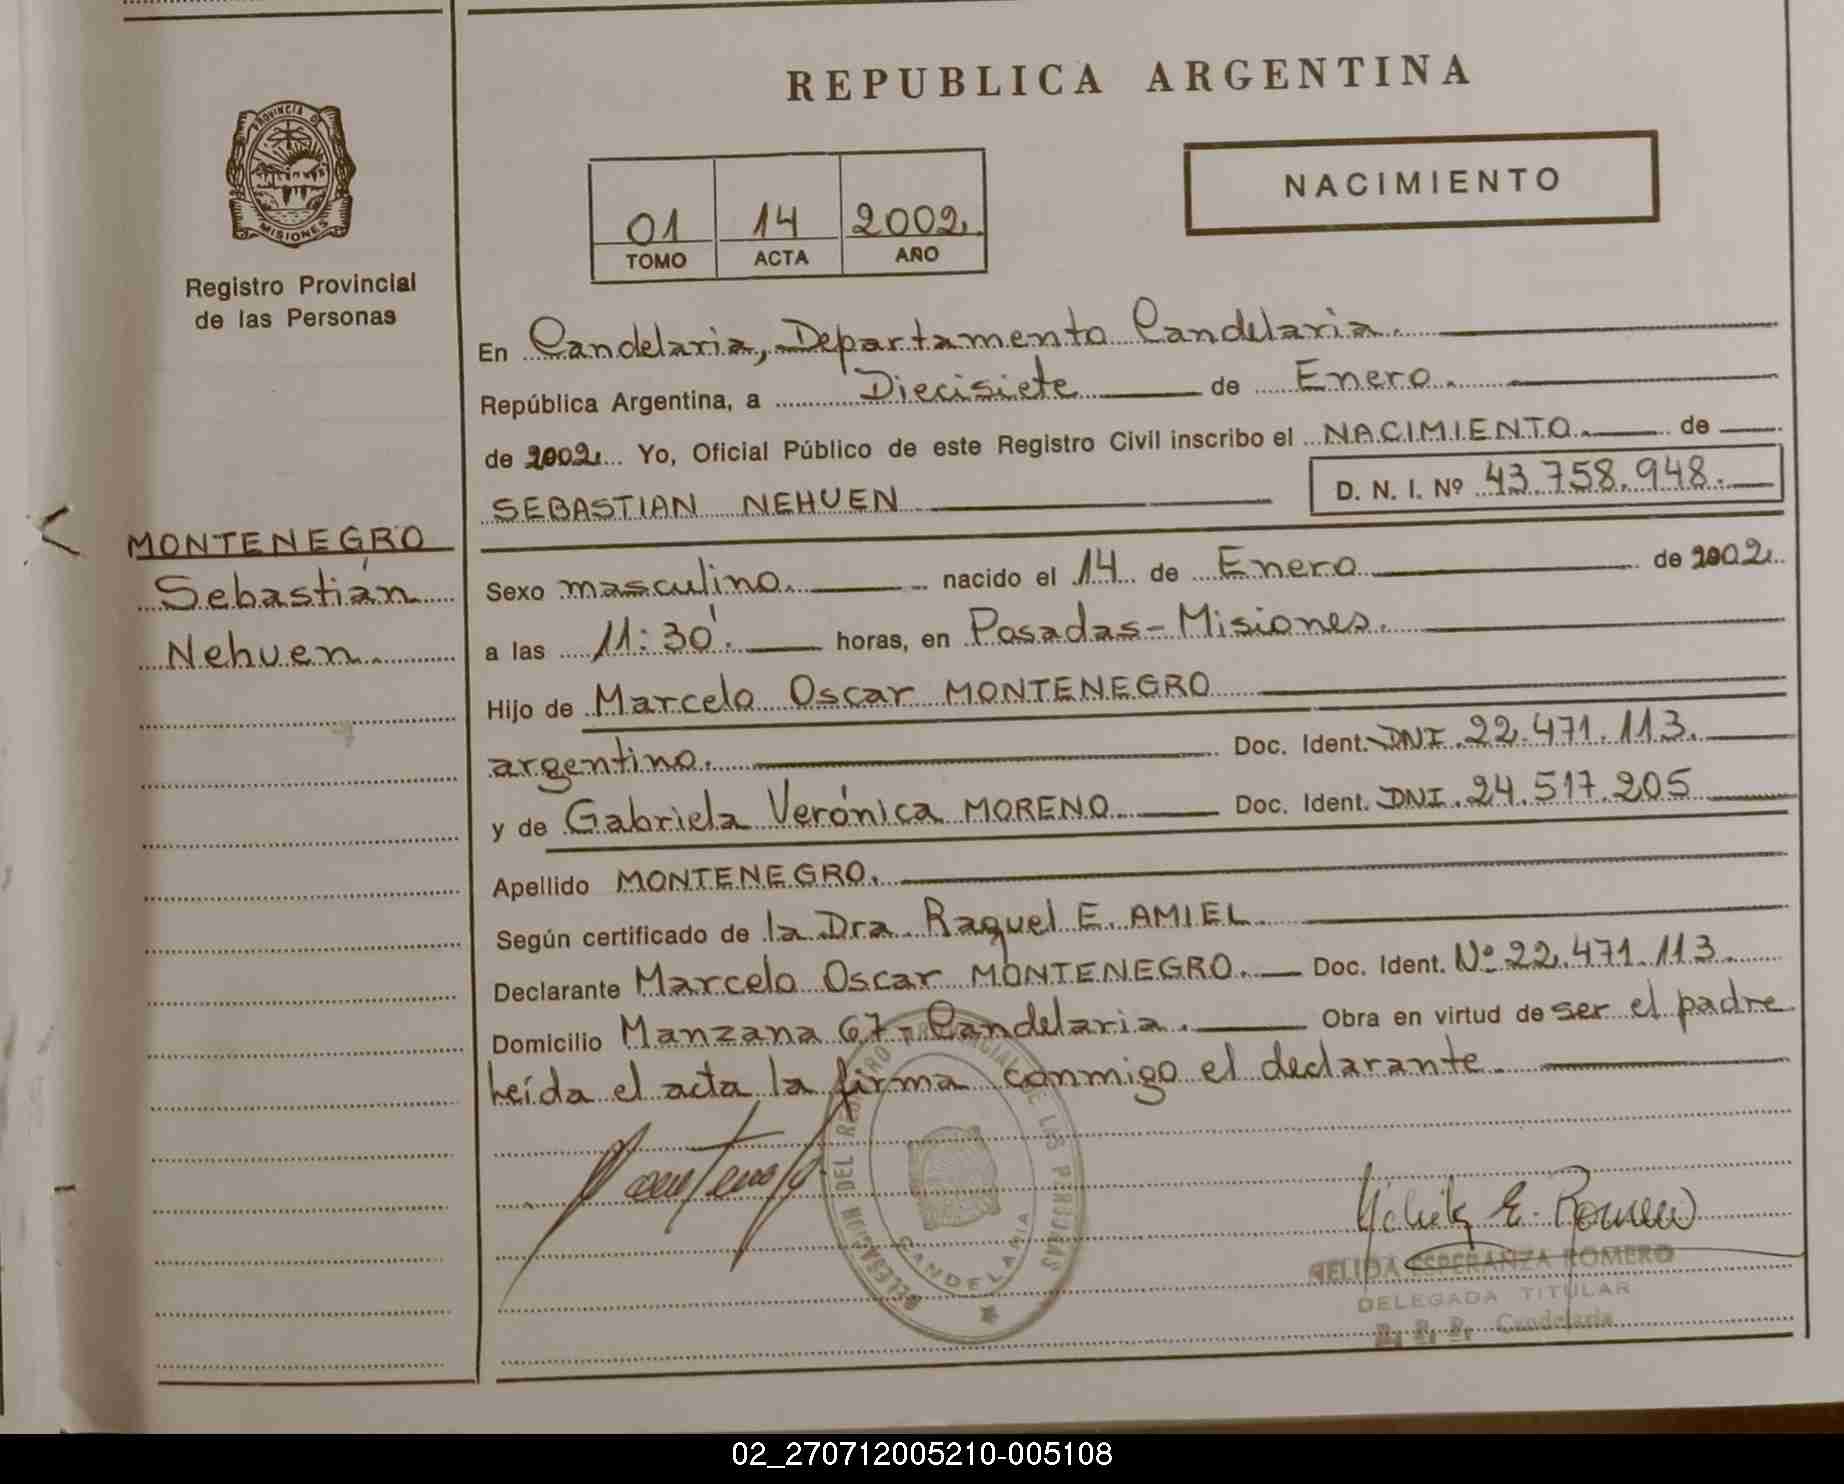 REPUBLICA ARGENTINA
PROVINCIA DE
MISIONES
Registro Provincial
de las Personas
NACIMIENTO
01 14 2002.
TOMO ACTA AÑO
En Candelaria, Departamento Candelaria.
República Argentina, a Diecisiete de Enero.
de 2002. Yo, Oficial Público de este Registro Civil inscribo el NACIMIENTO. de
SEBASTIAN NEHUEN D. N. I. Nº 43.758.948.
MONTENEGRO
Sebastián
Nehuen.
Sexo masculino. nacido el 14 de Enero de 2002.
a las 11:30'. horas, en Posadas-Misiones.
Hijo de Marcelo Oscar MONTENEGRO
argentino. Doc. Ident. DNI. 22.471.113.
y de Gabriela Verónica MORENO. Doc. Ident. DNI. 24.517.205
Apellido MONTENEGRO.
Según certificado de la Dra. Raquel E. AMIEL.
Declarante Marcelo Oscar MONTENEGRO. Doc. Ident. Nº 22.471.113.
Domicilio Manzana 67- Candelaria. Obra en virtud de ser el padre
Leída el acta la firma conmigo el declarante.
DELEGACION DEL REGISTRO PROVINCIAL DE LAS PERSONAS
CANDELARIA
E. Romero
ESPERANZA ROMERO
DELEGADA TITULAR
R. P. P. Candelaria
02_270712005210-005108